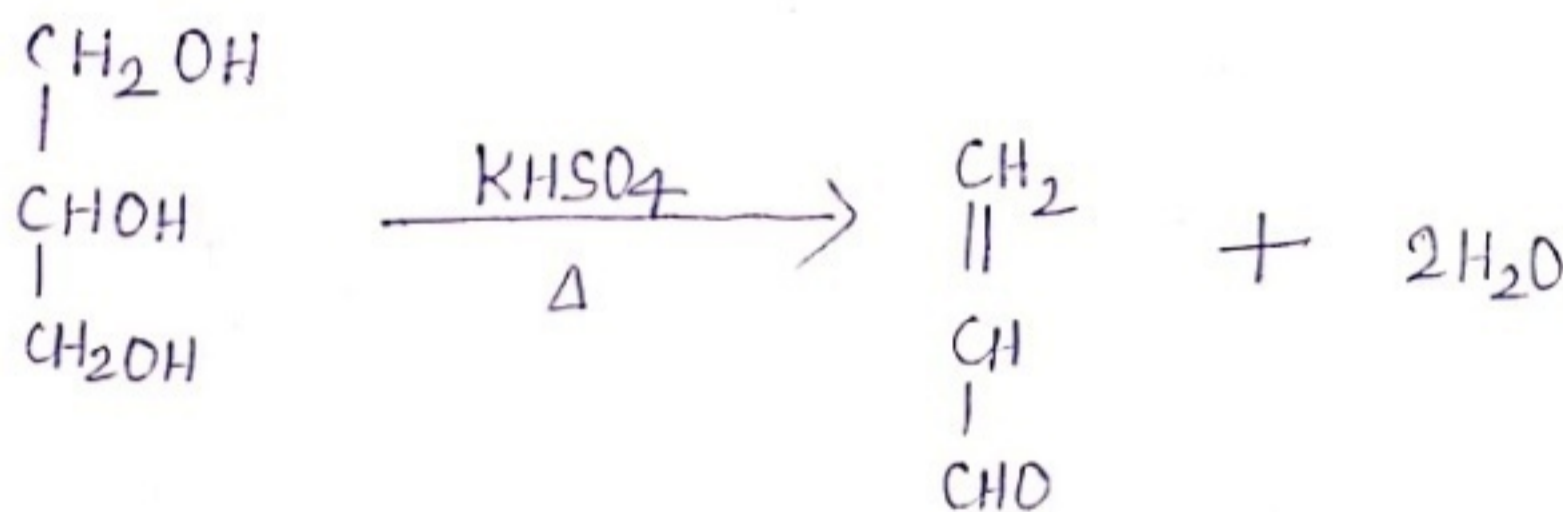 CH2OH
CHOH
CH2OH
KHSO4
Δ
CH2
CH
CHO
+ 2H2O